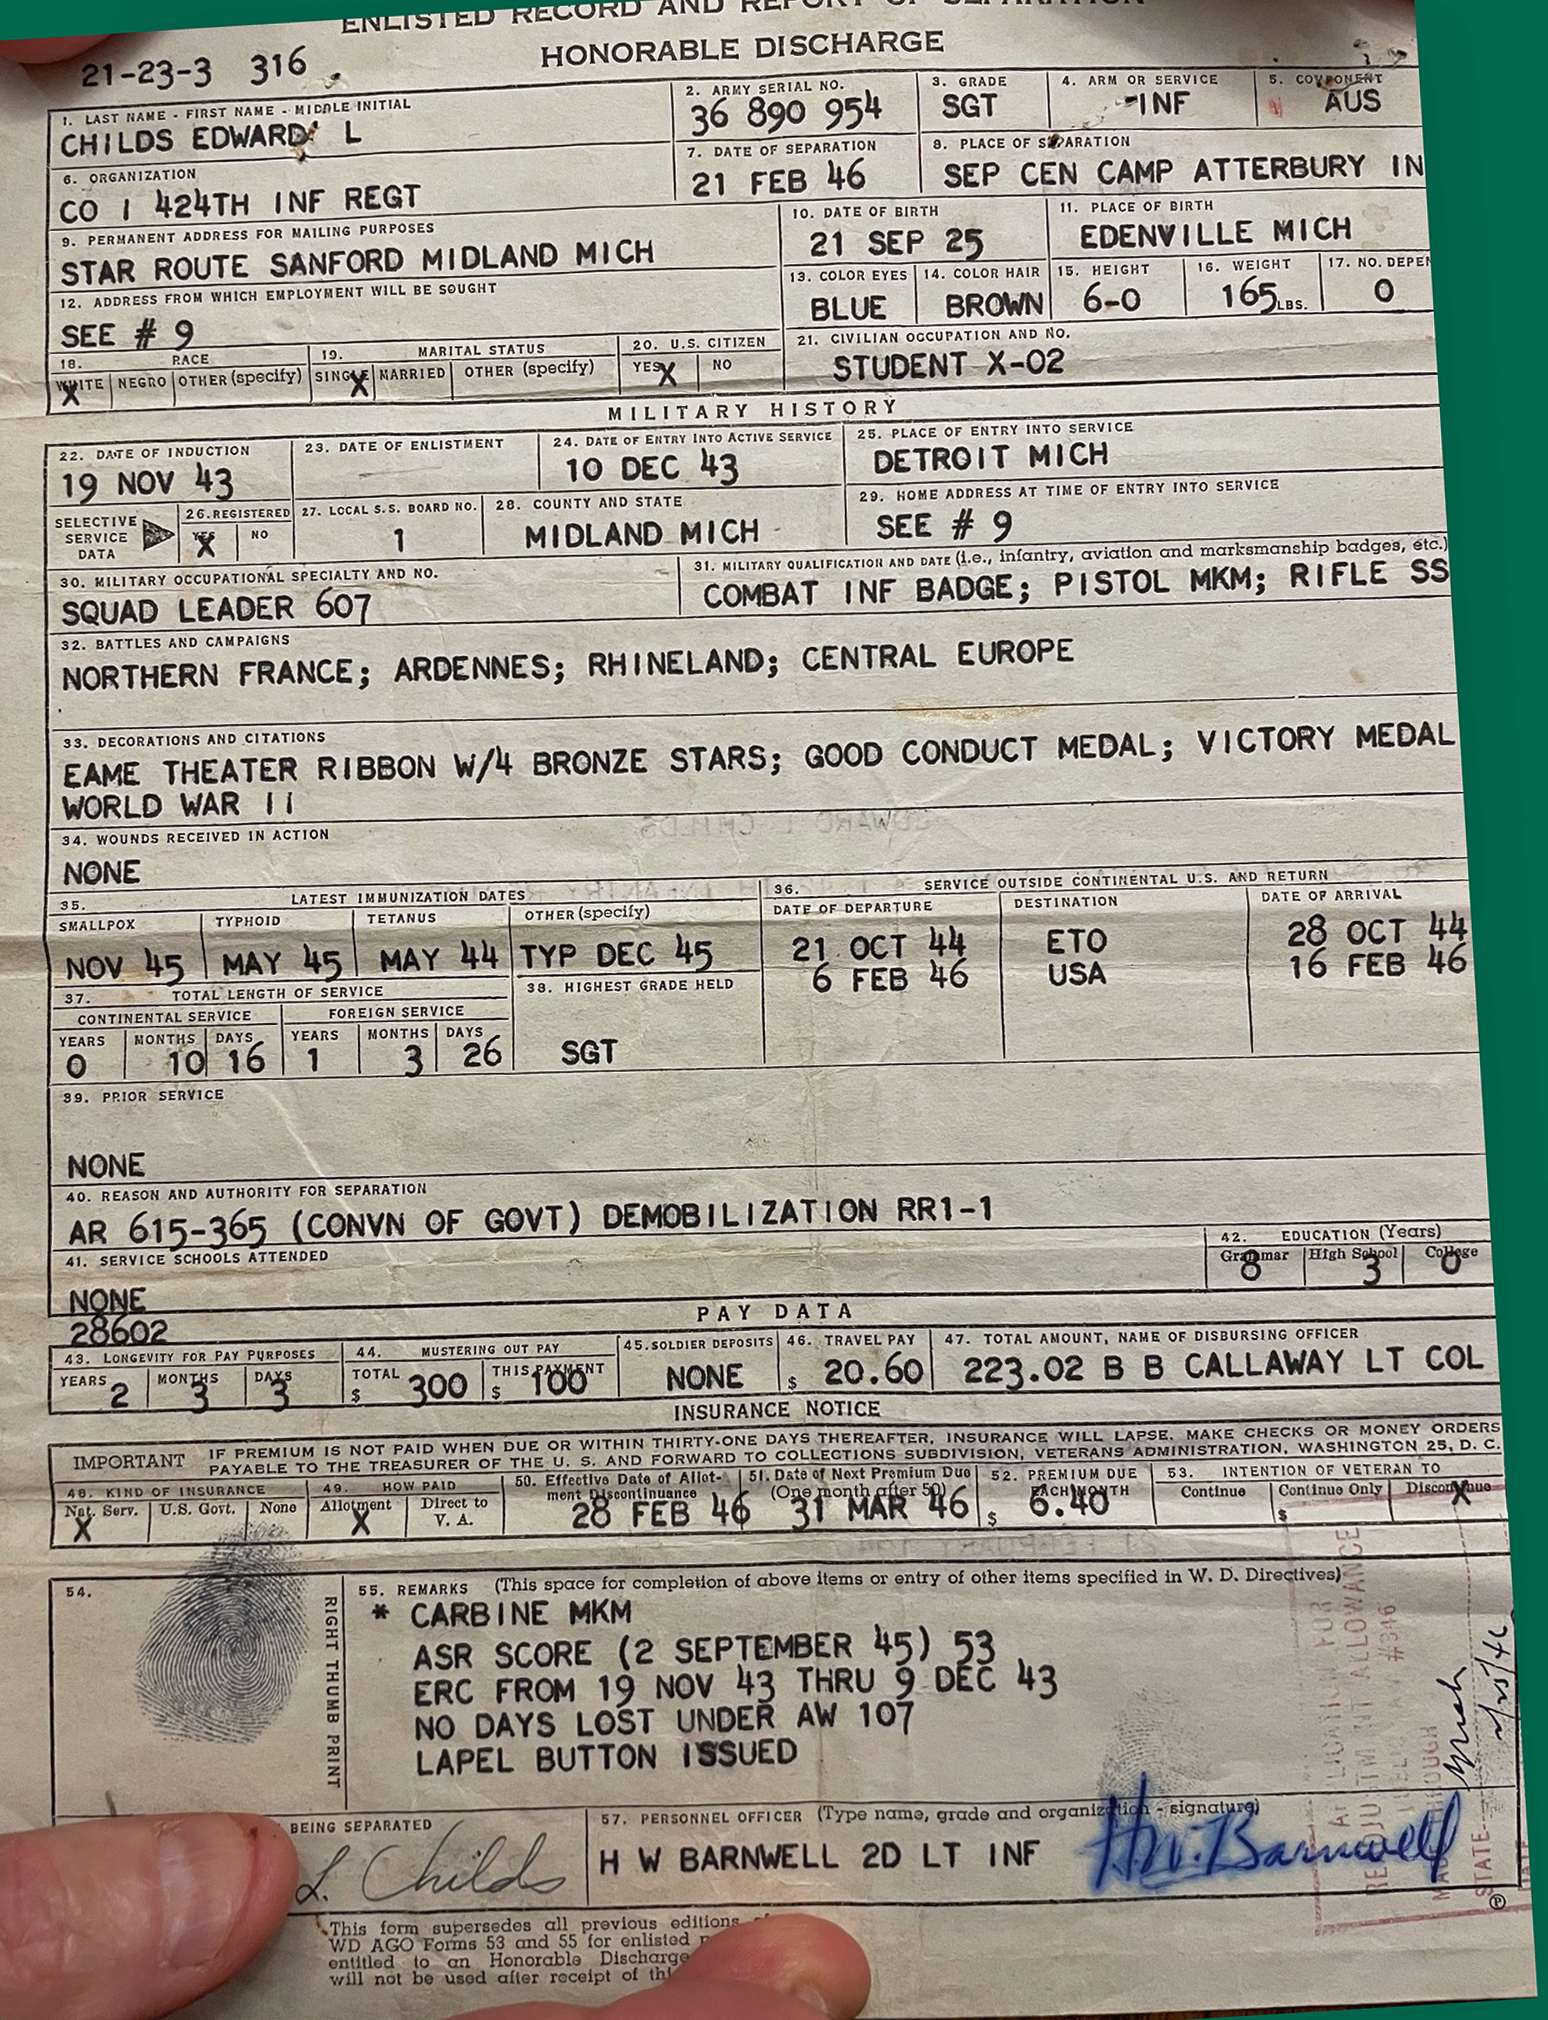 ENLISTED RECORD AND REPORT OF SEPARATION
HONORABLE DISCHARGE
21-23-3 316
1. LAST NAME - FIRST NAME - MIDDLE INITIAL
CHILDS EDWARD L
2. ARMY SERIAL NO.
36 890 954
3. GRADE
SGT
4. ARM OR SERVICE
INF
5. COMPONENT
AUS
6. ORGANIZATION
CO I 424TH INF REGT
7. DATE OF SEPARATION
21 FEB 46
8. PLACE OF SEPARATION
SEP CEN CAMP ATTERBURY IN
9. PERMANENT ADDRESS FOR MAILING PURPOSES
STAR ROUTE SANFORD MIDLAND MICH
10. DATE OF BIRTH
21 SEP 25
11. PLACE OF BIRTH
EDENVILLE MICH
12. ADDRESS FROM WHICH EMPLOYMENT WILL BE SOUGHT
SEE # 9
13. COLOR EYES
BLUE
14. COLOR HAIR
BROWN
15. HEIGHT
6-0
16. WEIGHT
165 LBS.
17. NO. DEPEN
0
18. RACE
WHITE NEGRO OTHER (specify)
X
19. MARITAL STATUS
SINGLE MARRIED OTHER (specify)
X
20. U.S. CITIZEN
YES NO
X
21. CIVILIAN OCCUPATION AND NO.
STUDENT X-02
MILITARY HISTORY
22. DATE OF INDUCTION
19 NOV 43
23. DATE OF ENLISTMENT
24. DATE OF ENTRY INTO ACTIVE SERVICE
10 DEC 43
25. PLACE OF ENTRY INTO SERVICE
DETROIT MICH
SELECTIVE SERVICE DATA
26. REGISTERED
YES NO
X
27. LOCAL S.S. BOARD NO.
1
28. COUNTY AND STATE
MIDLAND MICH
29. HOME ADDRESS AT TIME OF ENTRY INTO SERVICE
SEE # 9
30. MILITARY OCCUPATIONAL SPECIALTY AND NO.
SQUAD LEADER 607
31. MILITARY QUALIFICATION AND DATE (i.e., infantry, aviation and marksmanship badges, etc.)
COMBAT INF BADGE; PISTOL MKM; RIFLE SS
32. BATTLES AND CAMPAIGNS
NORTHERN FRANCE; ARDENNES; RHINELAND; CENTRAL EUROPE
33. DECORATIONS AND CITATIONS
EAME THEATER RIBBON W/4 BRONZE STARS; GOOD CONDUCT MEDAL; VICTORY MEDAL
WORLD WAR II
34. WOUNDS RECEIVED IN ACTION
NONE
35. LATEST IMMUNIZATION DATES
SMALLPOX TYPHOID TETANUS OTHER (specify)
NOV 45 MAY 45 MAY 44 TYP DEC 45
36. SERVICE OUTSIDE CONTINENTAL U.S. AND RETURN
DATE OF DEPARTURE DESTINATION DATE OF ARRIVAL
21 OCT 44 ETO 28 OCT 44
6 FEB 46 USA 16 FEB 46
37. TOTAL LENGTH OF SERVICE
CONTINENTAL SERVICE FOREIGN SERVICE
YEARS MONTHS DAYS YEARS MONTHS DAYS
0 10 16 1 3 26
38. HIGHEST GRADE HELD
SGT
39. PRIOR SERVICE
NONE
40. REASON AND AUTHORITY FOR SEPARATION
AR 615-365 (CONVN OF GOVT) DEMOBILIZATION RR1-1
41. SERVICE SCHOOLS ATTENDED
NONE
42. EDUCATION (Years)
Grammar High School College
8 3 0
PAY DATA
28602
43. LONGEVITY FOR PAY PURPOSES
YEARS MONTHS DAYS
2 3 3
44. MUSTERING OUT PAY
TOTAL THIS PAYMENT
$ 300 $ 100
45. SOLDIER DEPOSITS
NONE
46. TRAVEL PAY
$ 20.60
47. TOTAL AMOUNT, NAME OF DISBURSING OFFICER
223.02 B B CALLAWAY LT COL
INSURANCE NOTICE
IMPORTANT
IF PREMIUM IS NOT PAID WHEN DUE OR WITHIN THIRTY-ONE DAYS THEREAFTER, INSURANCE WILL LAPSE. MAKE CHECKS OR MONEY ORDERS
PAYABLE TO THE TREASURER OF THE U. S. AND FORWARD TO COLLECTIONS SUBDIVISION, VETERANS ADMINISTRATION, WASHINGTON 25, D. C.
48. KIND OF INSURANCE
Nat. Serv. U.S. Govt. None
X
49. HOW PAID
Allotment Direct to V. A.
X
50. Effective Date of Allot-
ment Discontinuance
28 FEB 46
51. Date of Next Premium Due
(One month after 50)
31 MAR 46
52. PREMIUM DUE
EACH MONTH
$ 6.40
53. INTENTION OF VETERAN TO
Continue Continue Only Discontinue
$ X
54.
RIGHT THUMB PRINT
55. REMARKS (This space for completion of above items or entry of other items specified in W. D. Directives)
* CARBINE MKM
ASR SCORE (2 SEPTEMBER 45) 53
ERC FROM 19 NOV 43 THRU 9 DEC 43
NO DAYS LOST UNDER AW 107
LAPEL BUTTON ISSUED
BEING SEPARATED
L. Childs
57. PERSONNEL OFFICER (Type name, grade and organization - signature)
H W BARNWELL 2D LT INF
H.W. Barnwell
This form supersedes all previous editions
WD AGO Forms 53 and 55 for enlisted
entitled to an Honorable Discharge
will not be used after receipt of